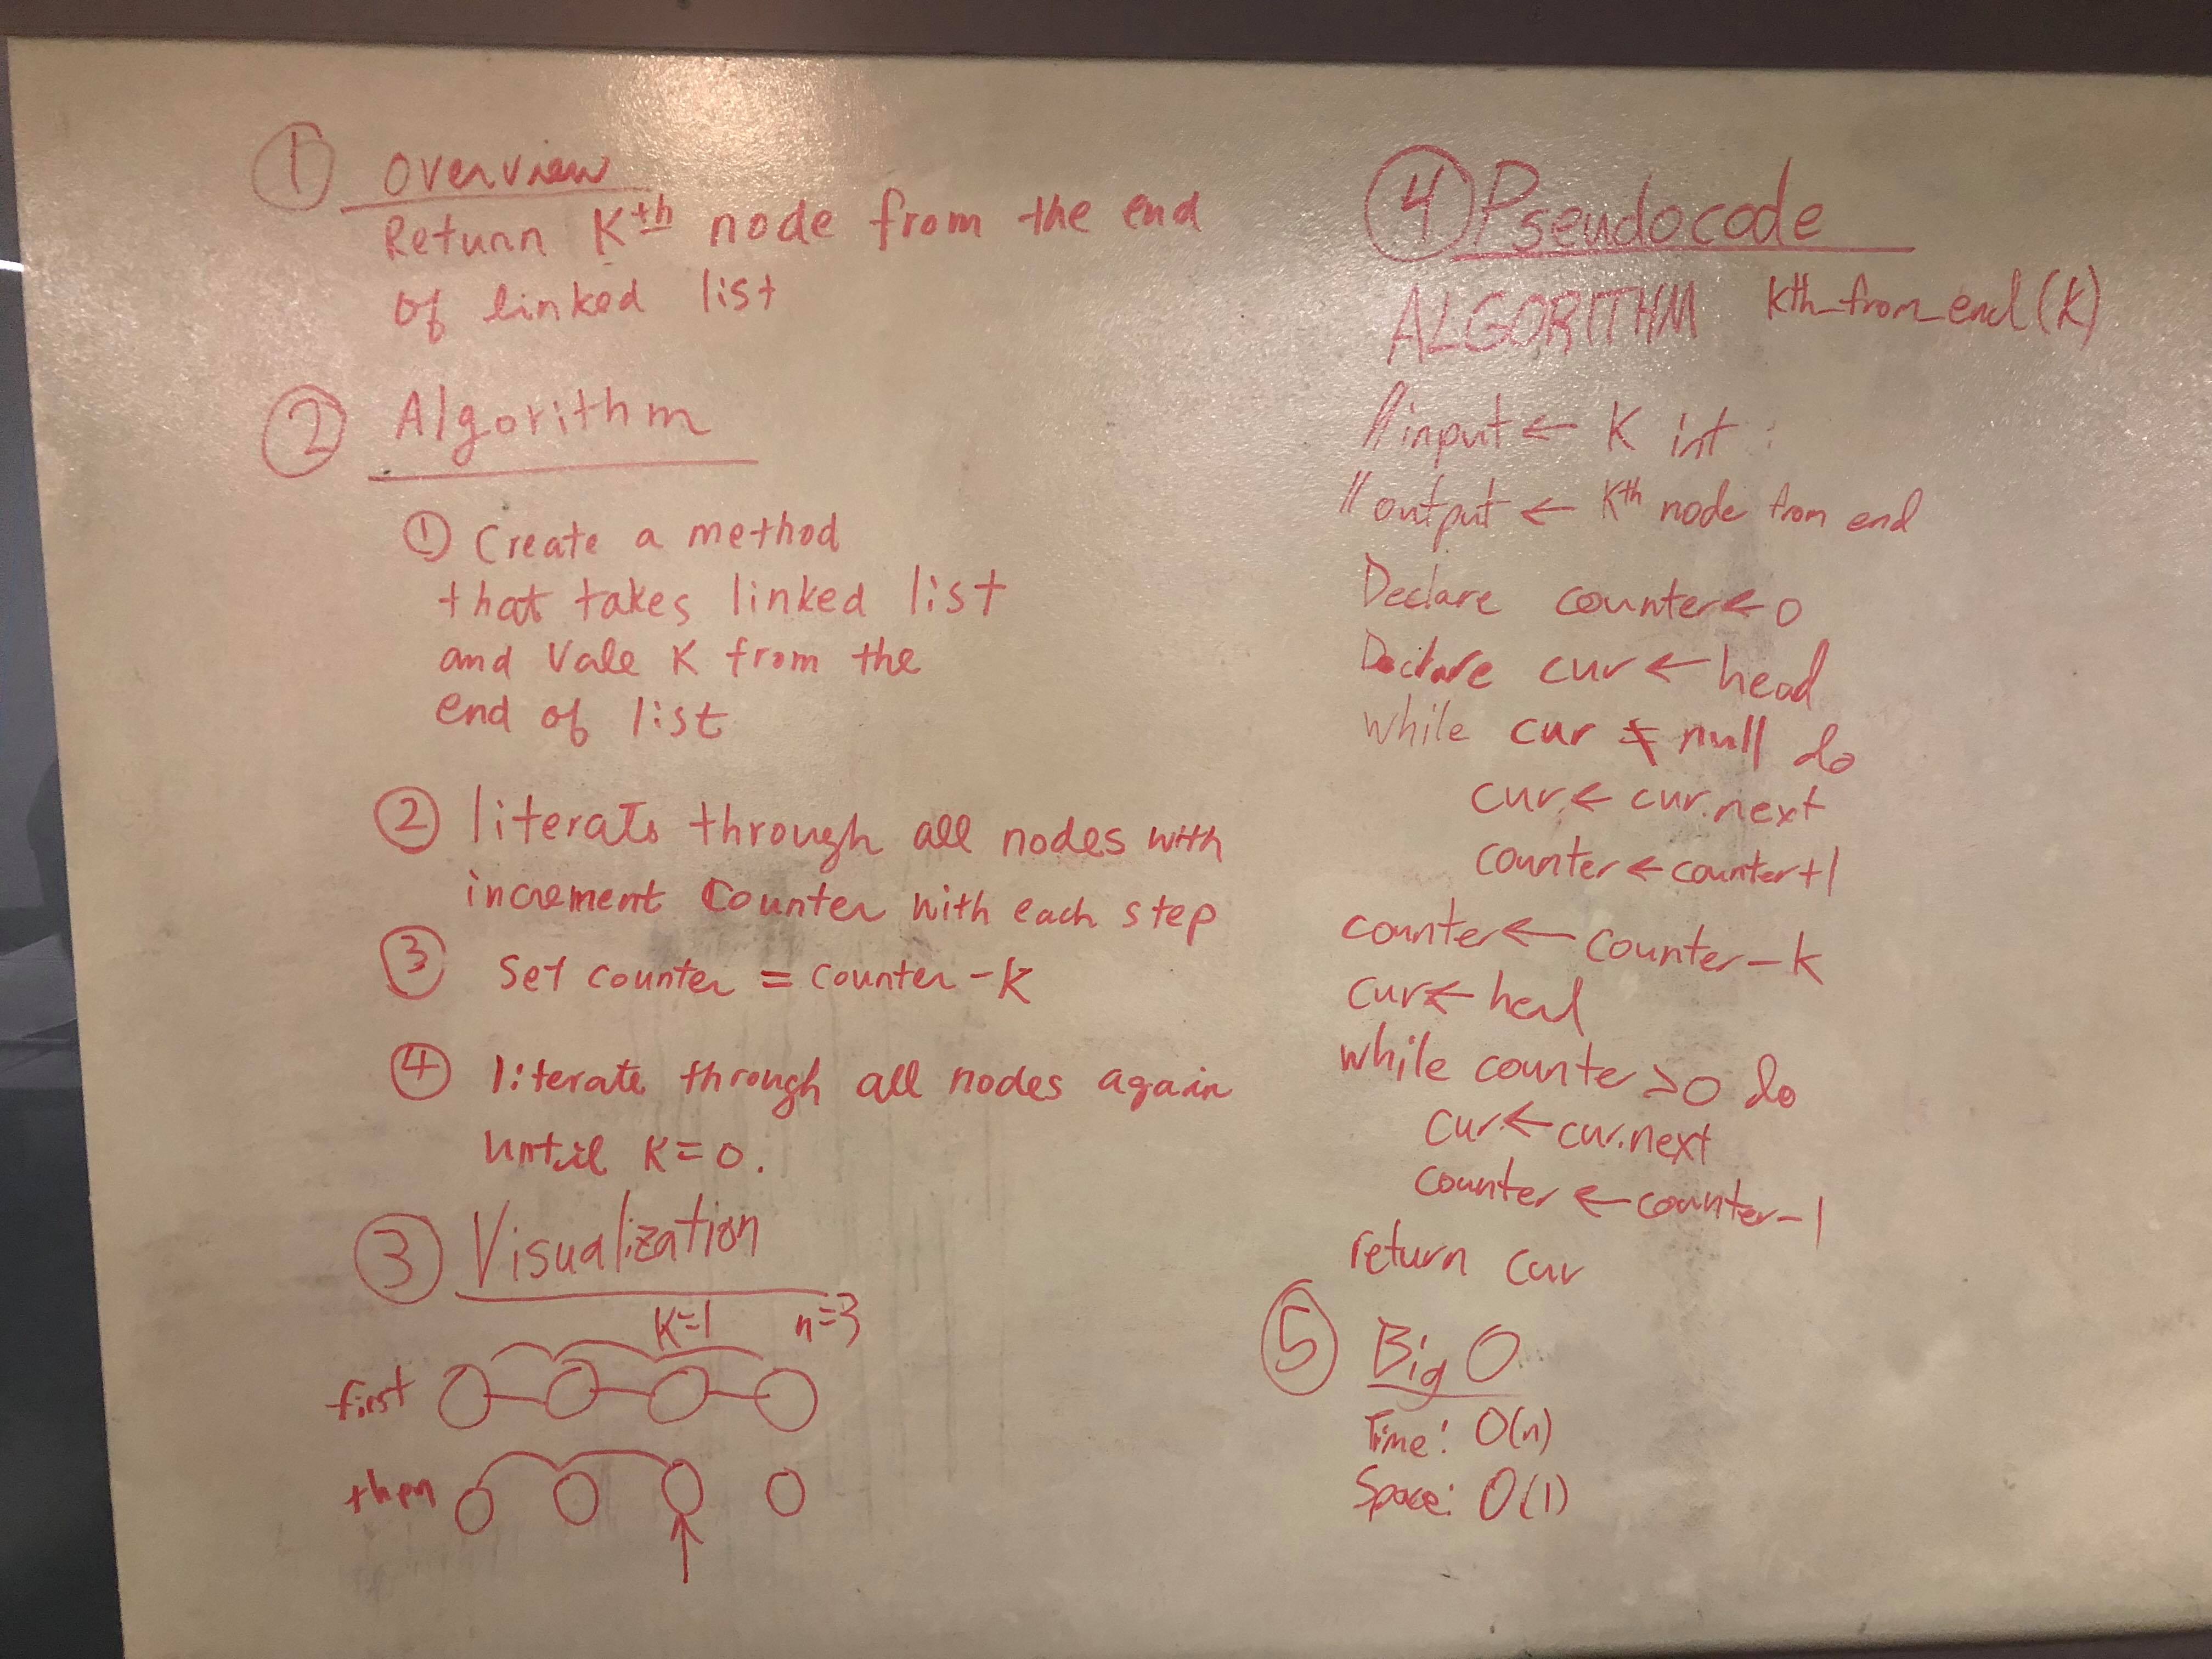 ① Overview
Return Kth node from the end
of linked list
② Algorithm
① Create a method
that takes linked list
and Vale K from the
end of list
② literate through all nodes with
increment Counter with each step
③ Set counter = counter - K
④ literate through all nodes again
until K=0.
③ Visualization
K=1 n=3
first
then
④ Pseudocode
ALGORITHM kth_from_end(k)
//input ← K int :
//output ← Kth node from end
Declare counter ← 0
Declare cur ← head
while cur ≠ null do
cur ← cur.next
counter ← counter+1
counter ← counter - k
cur ← head
while counter > 0 do
cur ← cur.next
counter ← counter - 1
return cur
⑤ Big O
Time: O(n)
Space: O(1)